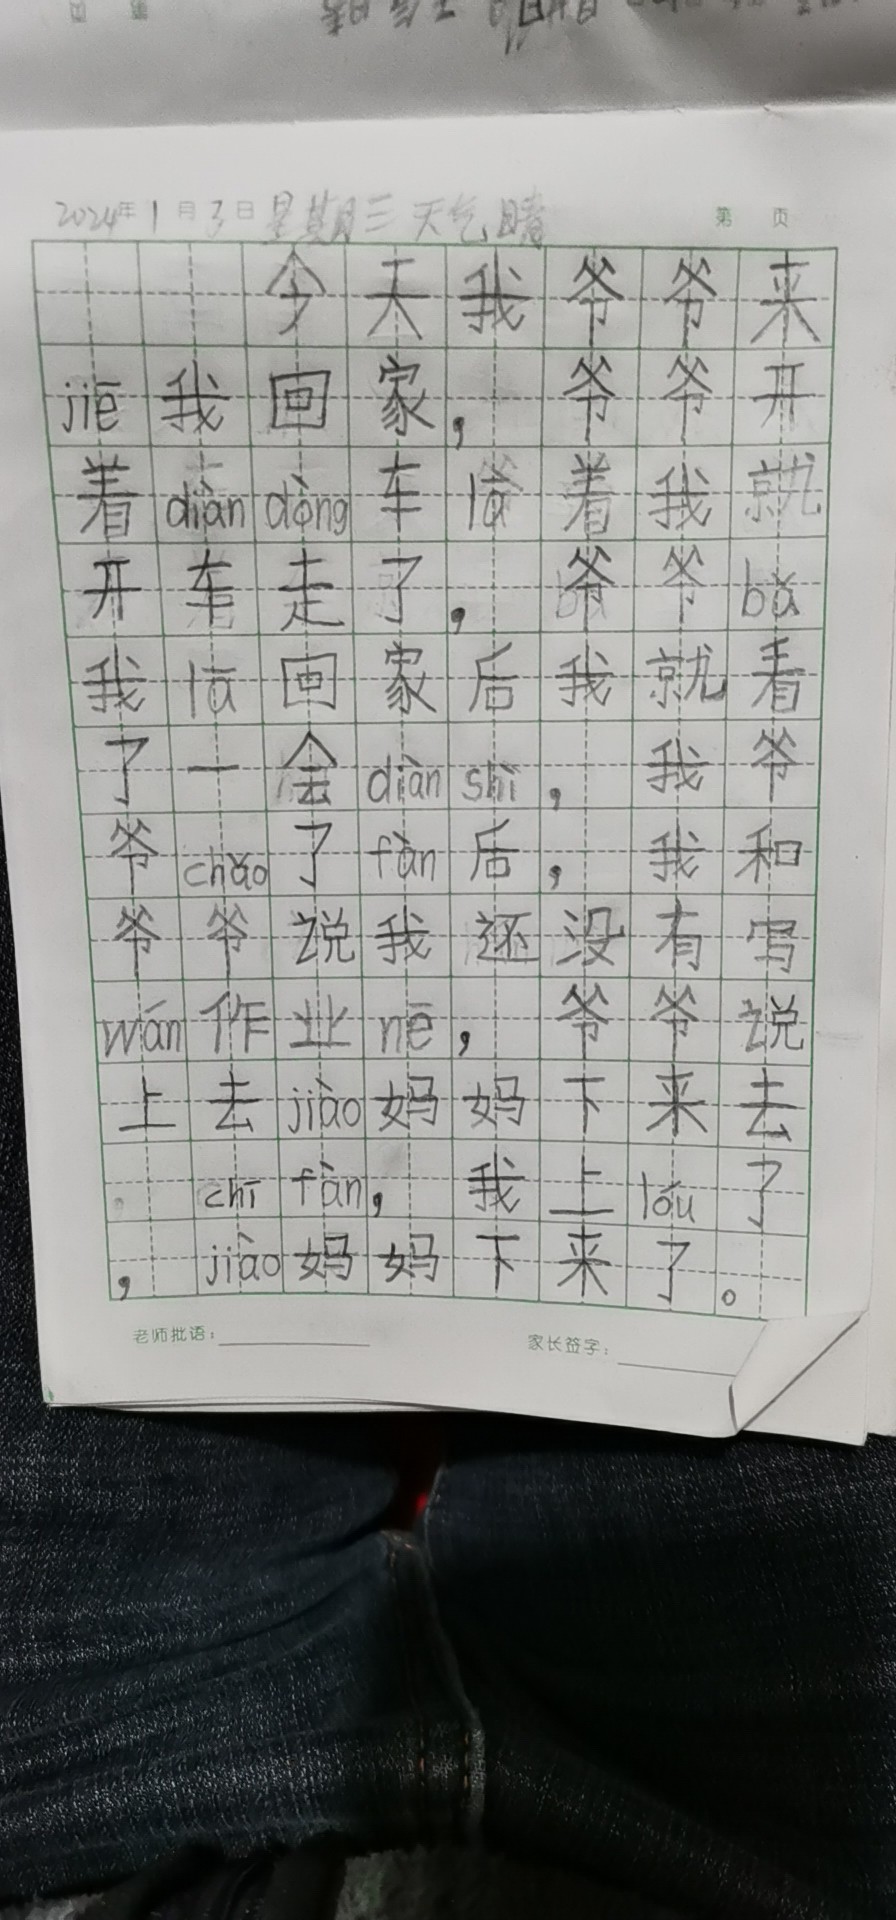 2024年1月3日星期三天气晴 第 页
今天我爷爷来
jiē我回家，爷爷开
着diàn dòng车lā着我就
开车走了，爷爷bǎ
我lā回家后我就看
了一会diàn shì，我爷
爷chǎo了fàn后，我和
爷爷说我还没有写
wán作业nē，爷爷说
上去jiào妈妈下来去
chī fàn，我上lóu了
，jiào妈妈下来了。
老师批语： 家长签字：